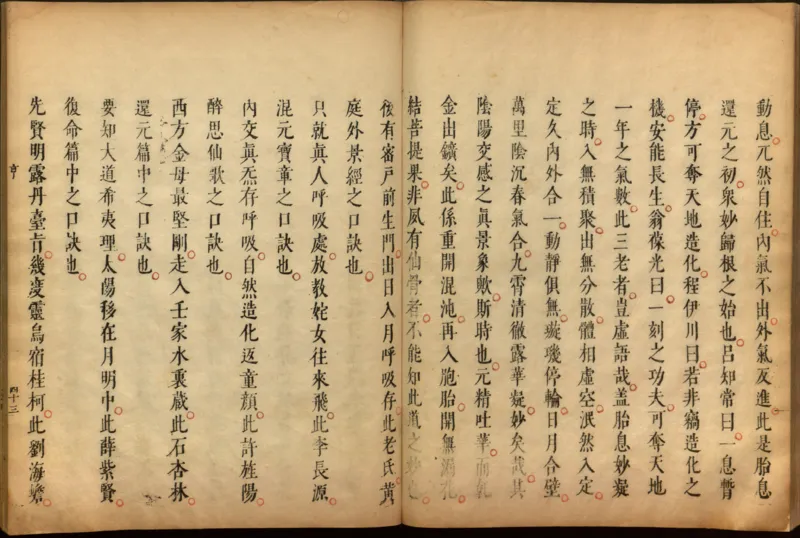 動息兀然自住內氣不出外氣反進此是胎息
還元之初衆妙歸根之始也呂知常曰一息暫
停方可奪天地造化程伊川曰若非竊造化之
機安能長生翁葆光曰一刻之功夫可奪天地
一年之氣數此三老者豈虛語哉盖胎息妙凝
之時入無積聚出無分散體相虛空泯然入定
定久內外合一動靜俱無璇璣停輪日月合璧
萬里陰沉春氣合九霄清徹露華凝妙矣哉其
陰陽交感之眞景象歟斯時也元精吐華而乾
金出鑛矣此係重開混沌再入胞胎開無漏花
結菩提果非夙有仙骨者不能知此道之妙也
後有審戶前生門出日入月呼吸存此老氏黃
庭外景經之口訣也
只就眞人呼吸處放教姹女往來飛此李長源
混元寶章之口訣也
內交眞炁存呼吸自然造化返童顏此許旌陽
醉思仙歌之口訣也
西方金母最堅剛走入壬家水裏藏此石杏林
還元篇中之口訣也
要知大道希夷理太陽移在月明中此薛紫賢
復命篇中之口訣也
先賢明露丹臺旨幾度靈烏宿桂柯此劉海蟾
亨
四十三